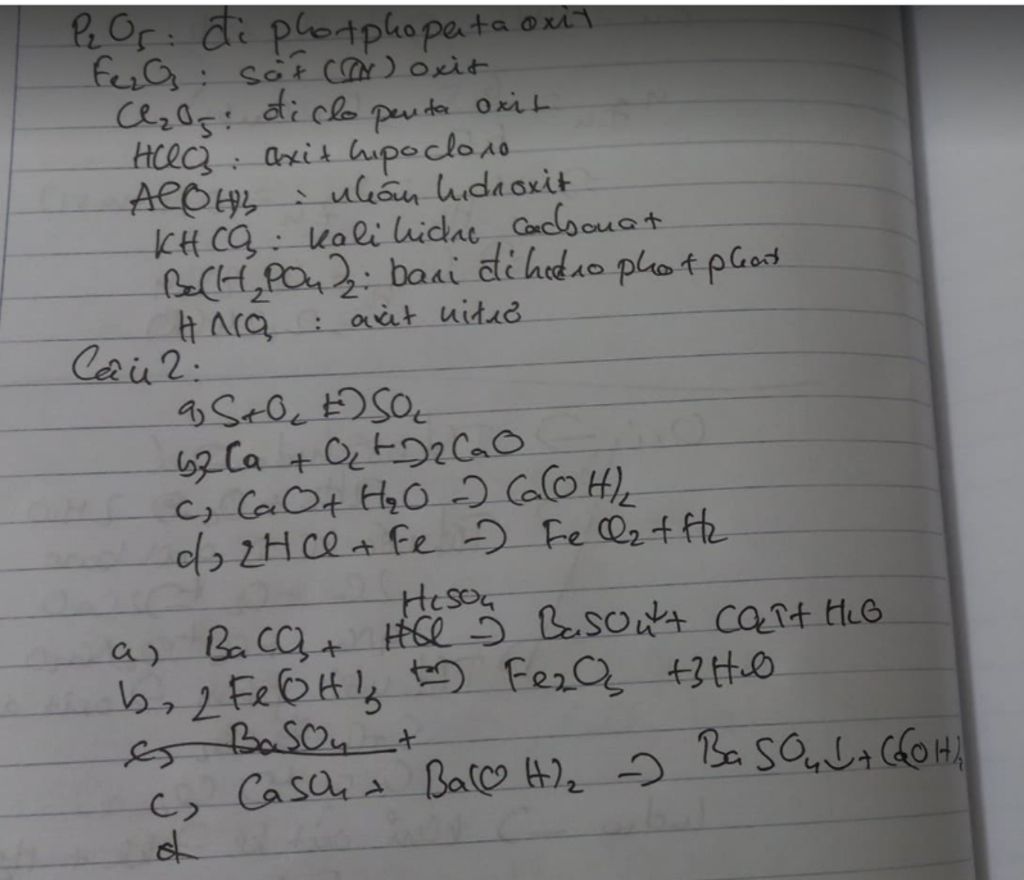 P₂O₅: đi photphopenta oxit
Fe₂O₃: sắt (III) oxit
Cl₂O₅: điclo penta oxit
HClO₃: axit hipocloro
Al(OH)₃: nhôm hidroxit
KHCO₃: kali hidro cacbonat
Ba(H₂PO₄)₂: bari đihidro photphat
HNO₃: axit nitro
Câu 2:
a, S+O₂ t→ SO₂
b, 2Ca + O₂ t→ 2CaO
c, CaO + H₂O → Ca(OH)₂
d, 2HCl + Fe → FeCl₂ + H₂
H₂SO₄
a, BaCO₃ + HCl → BaSO₄↓ + CO₂↑ + H₂O
b, 2Fe(OH)₃ t→ Fe₂O₃ + 3H₂O
c, BaSO₄ +
c, CaSO₄ + Ba(OH)₂ → BaSO₄↓ + Ca(OH)₂
d